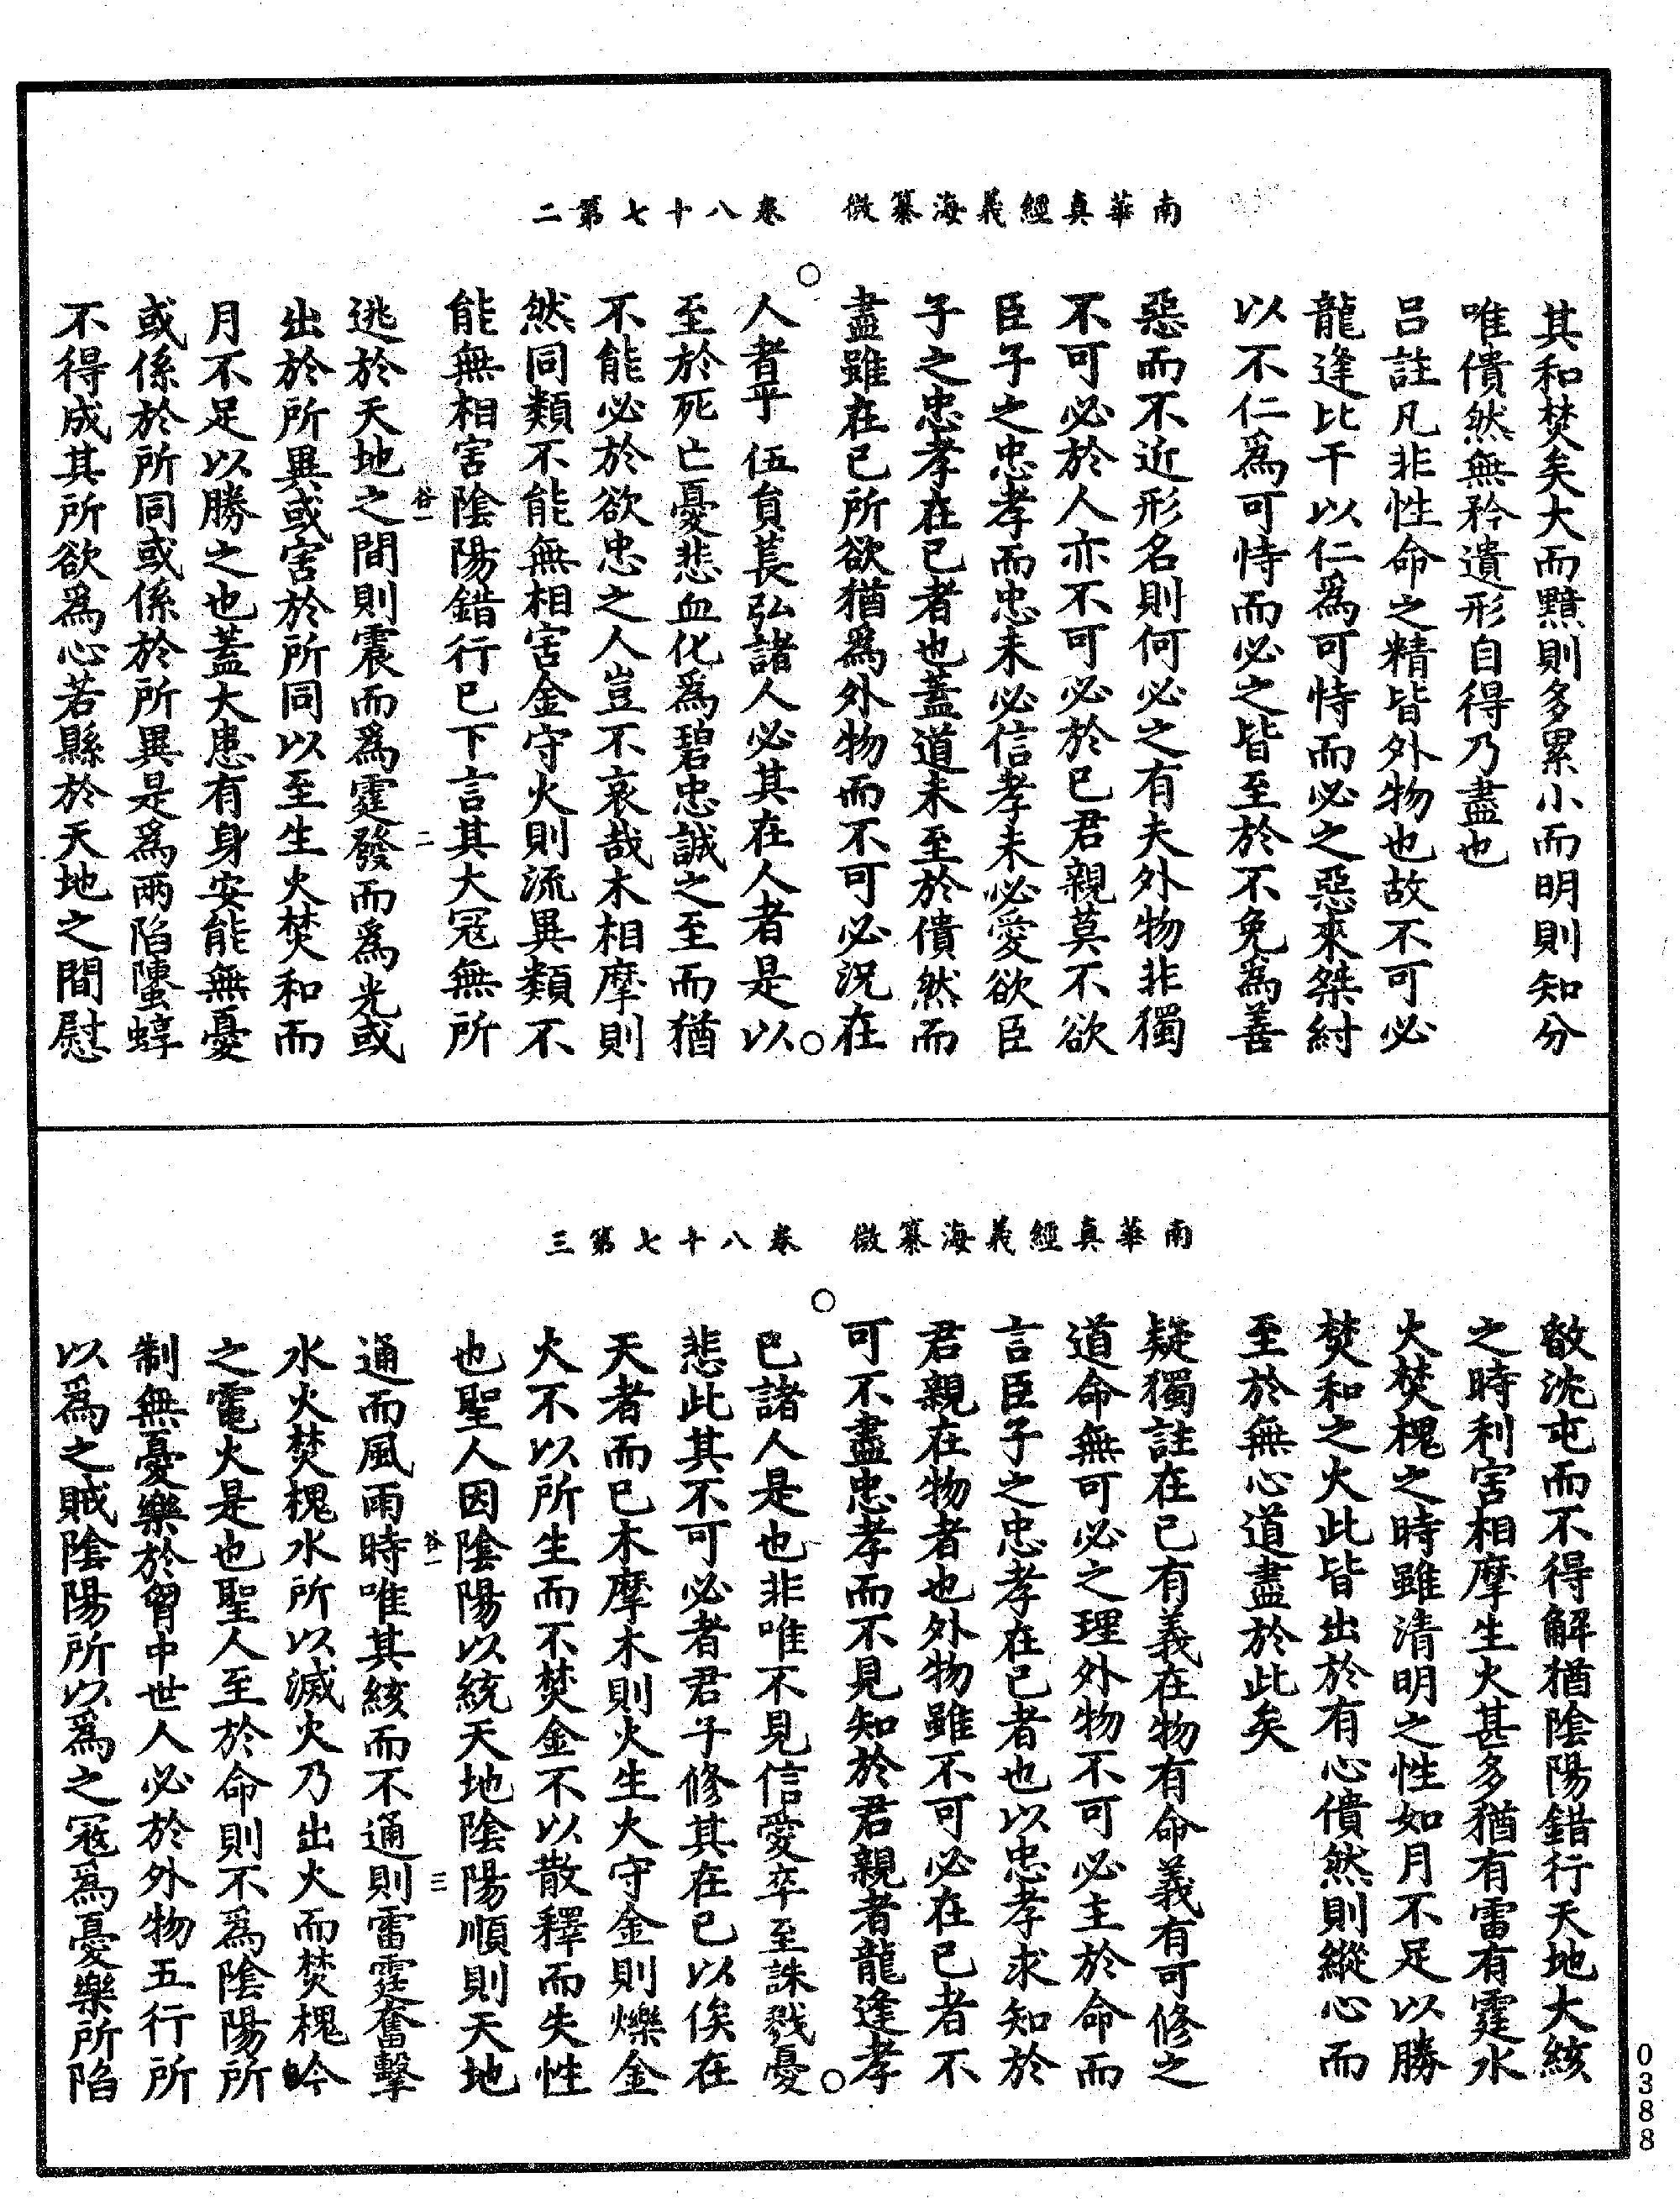 南華真經義海纂微　卷八十七第二
其和焚矣大而黯則多累小而明則知分
唯僓然無矜遺形自得乃盡也
呂註凡非性命之精皆外物也故不可必
龍逢比干以仁為可恃而必之惡來桀紂
以不仁為可恃而必之皆至於不免為善
惡而不近形名則何必之有夫外物非獨
不可必於人亦不可必於已君親莫不欲
臣子之忠孝而忠未必信孝未必愛欲臣
子之忠孝在已者也蓋道未至於僓然而
盡雖在已所欲猶為外物而不可必況在
人者乎伍負萇弘諸人必其在人者是以
至於死亡憂悲血化為碧忠誠之至而猶
不能必於欲忠之人豈不哀哉木相摩則
然同類不能無相害金守火則流異類不
能無相害陰陽錯行已下言其大寇無所
逃於天地之間則震而為霆發而為光或
出於所異或害於所同以至生火焚和而
月不足以勝之也蓋大患有身安能無憂
或係於所同或係於所異是為兩陷䗞蜳
不得成其所欲為心若縣於天地之間慰
谷一
二
南華真經義海纂微　卷八十七第三
敯沈屯而不得解猶陰陽錯行天地大絯
之時利害相摩生火甚多猶有雷有霆水
火焚槐之時雖清明之性如月不足以勝
焚和之火此皆出於有心僓然則縱心而
至於無心道盡於此矣
疑獨註在已有義在物有命義有可修之
道命無可必之理外物不可必主於命而
言臣子之忠孝在已者也以忠孝求知於
君親在物者也外物雖不可必在已者不
可不盡忠孝而不見知於君親者龍逢孝
已諸人是也非唯不見信愛卒至誅戮憂
悲此其不可必者君子修其在已以俟在
天者而已木摩木則火生火守金則爍金
火不以所生而不焚金不以散釋而失性
也聖人因陰陽以統天地陰陽順則天地
通而風雨時唯其絯而不通則雷霆奮擊
水火焚槐水所以滅火乃出火而焚槐吟
之電火是也聖人至於命則不為陰陽所
制無憂樂於胷中世人必於外物五行所
以為之賊陰陽所以為之寇為憂樂所陷
谷一
三
0388